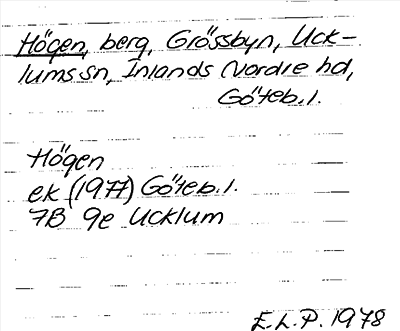 Högen, berg, Grössbyn, Uck-
lums sn, Inlands Nordre hd,
Göteb. l.
Högen
ek (1977) Göteb. l.
7B 9e Ucklum
E.L.P. 1978